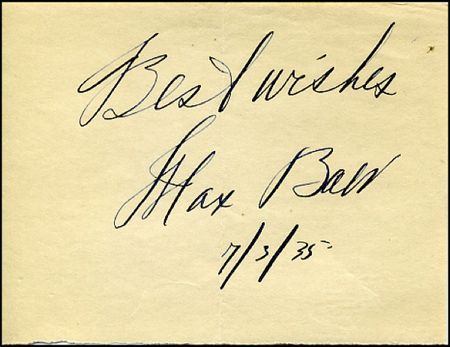 Best wishes
Max Baer
7/3/35